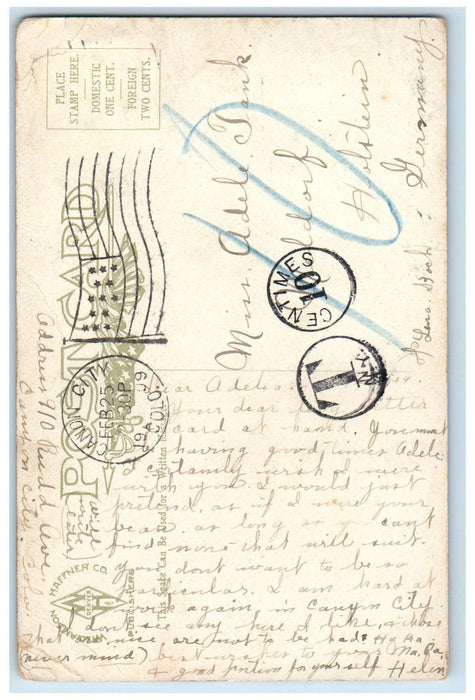 PLACE
STAMP HERE.
DOMESTIC
ONE CENT.
FOREIGN
TWO CENTS.
POST CARD
CANON CITY
FEB 25
1909
COLO.
10
CENTIMES
10
T
N.Y.
Miss. Adele Tank.
Holstein
Germany.
Address 910 Rudd Ave
Canyon City. Colo
This Space Can Be Used for a Written
WILLIAMSON HAFFNER CO.
W H
DENVER
PUBLISHERS
Dear Adele:
your dear letter
& card at hand. You must
having good times Adele
I certainly wish I were
with you. I would just
pretend, as if I were your
beau as long as you can't
find none that will suit.
you don't want to be so
particular. I am hard at
work again in Canyon City
don't see any here I like, & those
that are nice are not to be had. Ha Ha
never mind) best wishes to your Ma, Pa,
& good portion for your self Helen